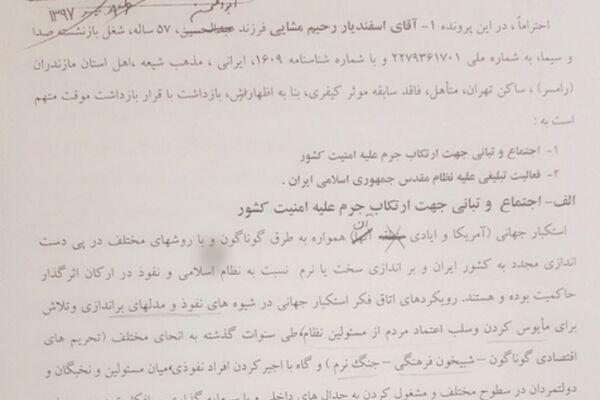 ابوالحسن
۱۳۹۷
احتراماً ، در این پرونده ۱- آقای اسفندیار رحیم مشایی فرزند عبدالحسین، ۵۷ ساله، شغل بازنشسته صدا
و سیما، به شماره ملی ۲۲۷۹۳۶۱۷۰۱ و با شماره شناسنامه ۱۶۰۹، ایرانی ، مذهب شیعه ،اهل استان مازندران
(رامسر) ، ساکن تهران، متأهل، فاقد سابقه موثر کیفری، بنا به اظهارش، بازداشت با قرار بازداشت موقت متهم
است به :
۱- اجتماع و تبانی جهت ارتکاب جرم علیه امنیت کشور
۲- فعالیت تبلیغی علیه نظام مقدس جمهوری اسلامی ایران .
الف- اجتماع و تبانی جهت ارتکاب جرم علیه امنیت کشور
استکبار جهانی (آمریکا و ایادی آن) همواره به طرق گوناگون و با روشهای مختلف در پی دست
اندازی مجدد به کشور ایران و بر اندازی سخت یا نرم نسبت به نظام اسلامی و نفوذ در ارکان اثرگذار
حاکمیت بوده و هستند. رویکردهای اتاق فکر استکبار جهانی در شیوه های نفوذ و مدلهای براندازی وتلاش
برای مأیوس کردن وسلب اعتماد مردم از مسئولین نظام،طی سنوات گذشته به انحای مختلف (تحریم های
اقتصادی گوناگون – شبیخون فرهنگی – جنگ نرم ) و گاه با اجیرکردن افراد نفوذی،میان مسئولین و نخبگان و
دولتمردان در سطوح مختلف و مشغول کردن به جدال های داخلی و با سرمایه گذاری